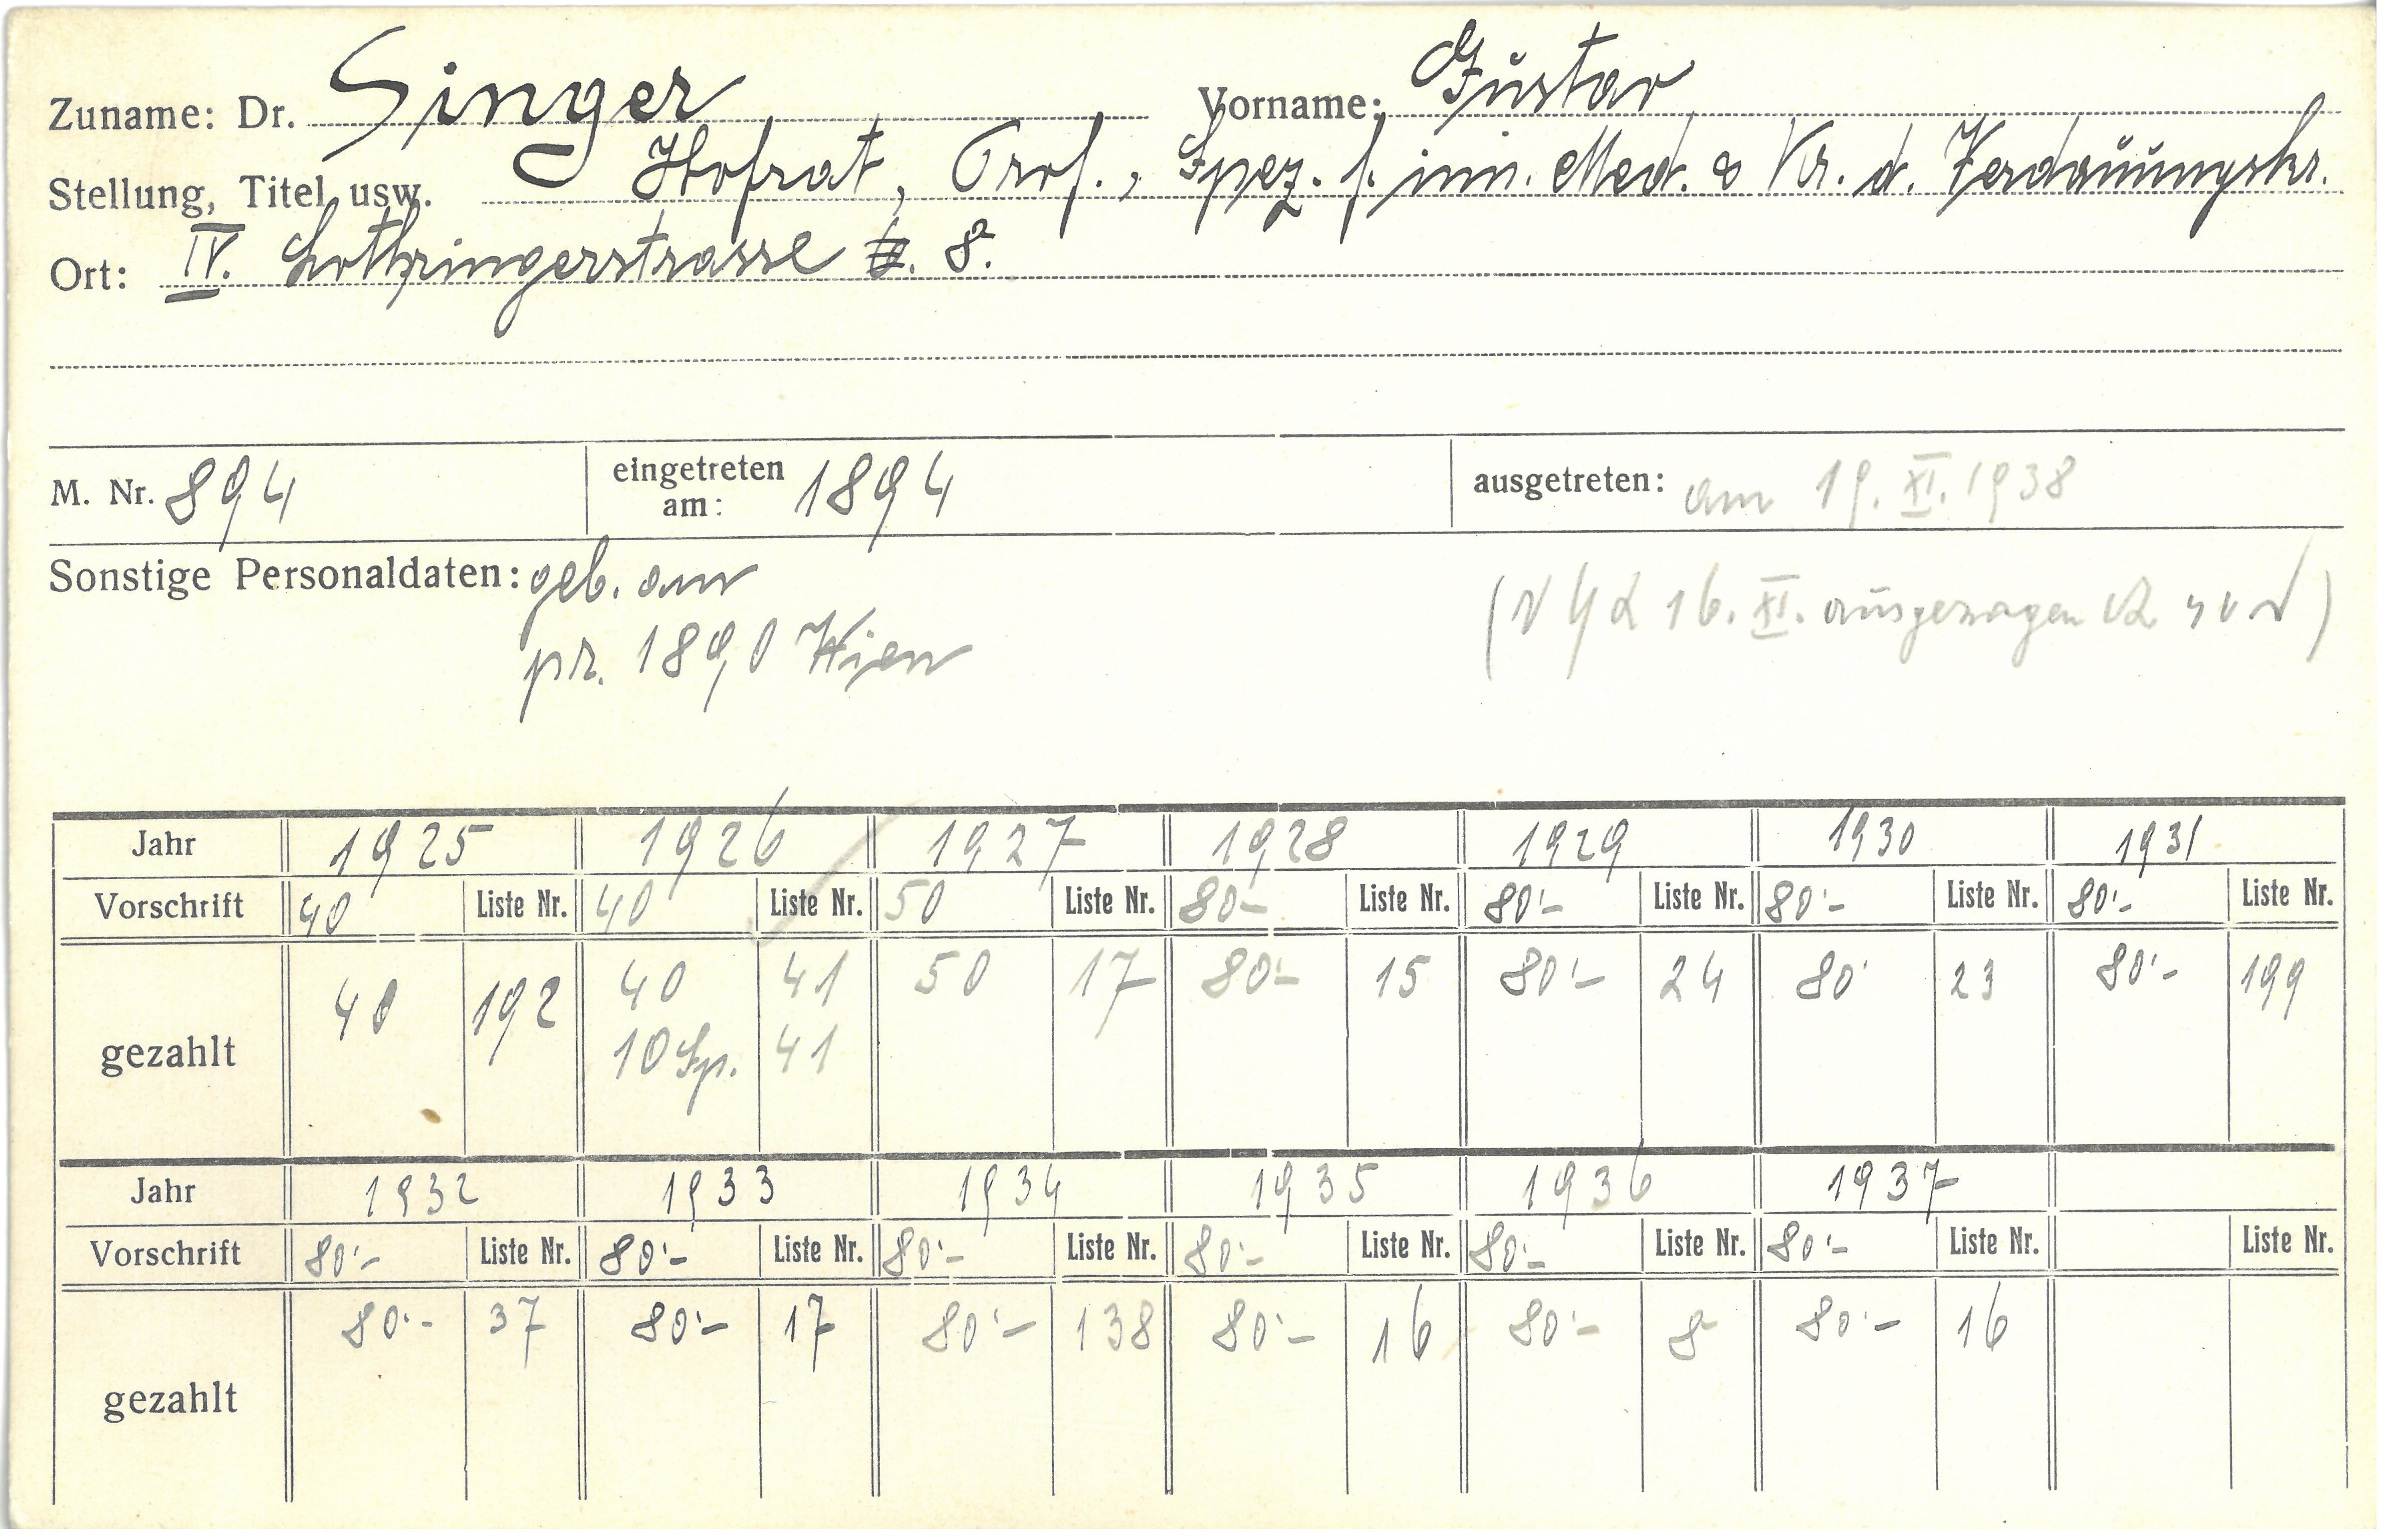 Zuname: Dr. Singer Vorname: Gustav
Stellung, Titel usw. Hofrat, Prof., Spez. f. inn. Med. & Kr. d. Verdauungskr.
Ort: IV. Lothringerstrasse 8.
M. Nr. 894 eingetreten am: 1894 ausgetreten: am 19. XI. 1938
Sonstige Personaldaten: geb. am
pr. 1890 Wien
( 16. XI. ausgezogen )
Jahr 1925 1926 1927 1928 1929 1930 1931
Vorschrift 40 Liste Nr. 40 Liste Nr. 50 Liste Nr. 80- Liste Nr. 80'- Liste Nr. 80'- Liste Nr. 80'- Liste Nr.
gezahlt 40 192 40 41 50 17 80'- 15 80'- 24 80' 23 80'- 199
10 Sp. 41
Jahr 1932 1933 1934 1935 1936 1937
Vorschrift 80'- Liste Nr. 80'- Liste Nr. 80'- Liste Nr. 80'- Liste Nr. 80'- Liste Nr. 80'- Liste Nr. Liste Nr.
gezahlt 80'- 37 80'- 17 80'- 138 80'- 16 80'- 8 80'- 16